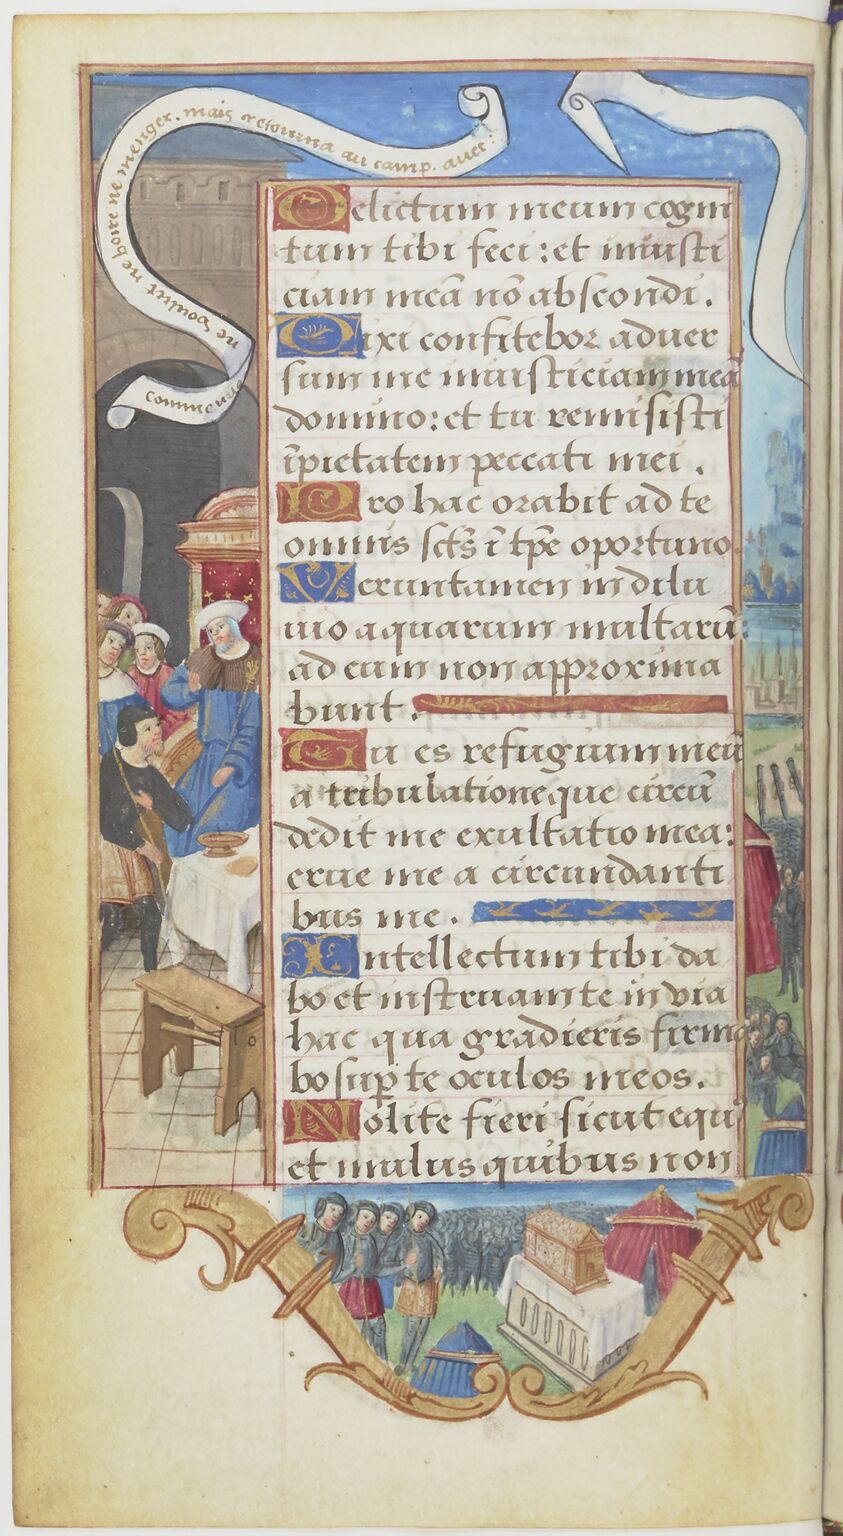 commende
ne voulut ne boire ne menger. mais retourna au camp. avec
Delictum meum cogni
tum tibi feci: et iniusti
ciam meā nō abscondi.
Dixi confitebor aduer
sum me iniusticiam meā
domino: et tu remisisti
īpietatem peccati mei.
Pro hac orabit ad te
omnis sct̄s ī tp̄e oportuno.
Veruntamen in dilu
uio aquarum multarū:
ad eum non approxima
bunt.
Tu es refugium meū
a tribulatione que circū
dedit me exultatio mea:
erue me a circundanti
bus me.
Intellectum tibi da
bo et instruam te in via
hac qua gradieris firma
bo sup̄ te oculos meos.
Nolite fieri sicut equꝰ
et mulus quibus non